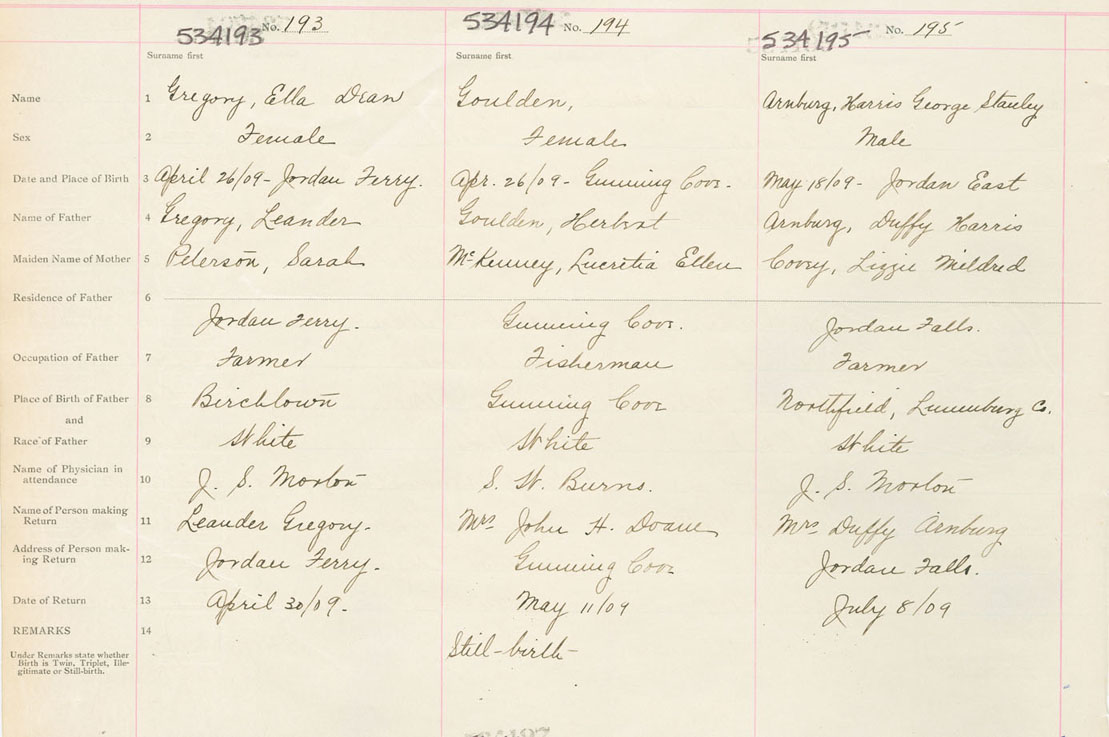 534193 No. 193 534194 No. 194 534195 No. 195
Surname first Surname first Surname first
Name 1 Gregory, Ella Dean Goulden, Arnburg, Harris George Stanley
Sex 2 Female Female Male
Date and Place of Birth 3 April 26/09 - Jordan Ferry. Apr. 26/09 - Gunning Cove. May 18/09 - Jordan East
Name of Father 4 Gregory, Leander Goulden, Herbert Arnburg, Duffy Harris
Maiden Name of Mother 5 Peterson, Sarah McKenney, Lucretia Ellen Covey, Lizzie Mildred
Residence of Father 6
Jordan Ferry. Gunning Cove. Jordan Falls.
Occupation of Father 7 Farmer Fisherman Farmer
Place of Birth of Father 8 Birchtown Gunning Cove Northfield, Lunenburg Co.
and
Race of Father 9 White White White
Name of Physician in
attendance 10 J. S. Morton S. W. Burns. J. S. Morton
Name of Person making
Return 11 Leander Gregory. Mrs John H. Doane Mrs Duffy Arnburg
Address of Person mak-
ing Return 12 Jordan Ferry. Gunning Cove Jordan Falls.
Date of Return 13 April 30/09. May 11/09 July 8/09
REMARKS 14
Under Remarks state whether
Birth is Twin, Triplet, Ille-
gitimate or Still-birth.
Still-birth